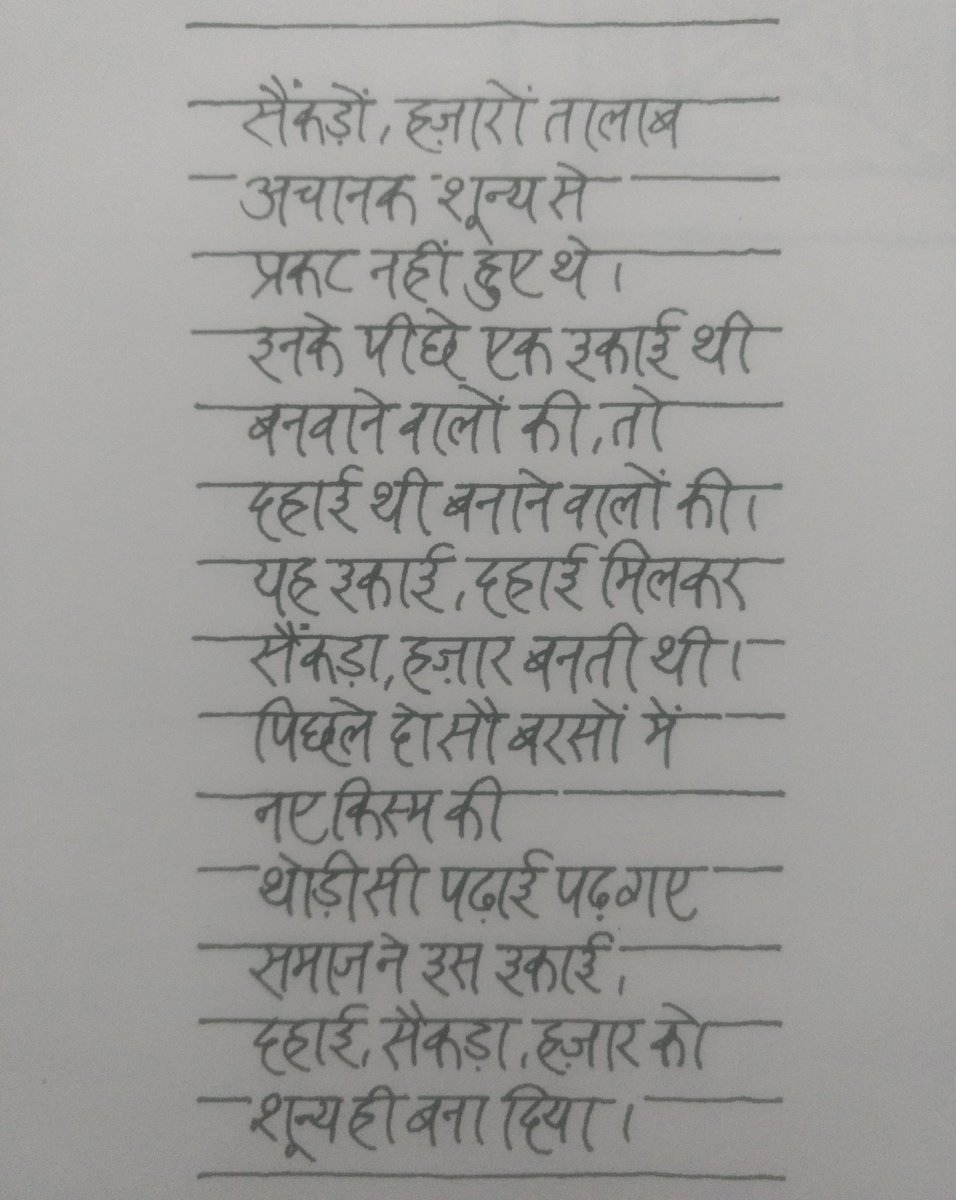 सैंकड़ों, हज़ारों तालाब
अचानक शून्य से
प्रकट नहीं हुए थे।
इनके पीछे एक इकाई थी
बनवाने वालों की, तो
दहाई थी बनाने वालों की।
यह इकाई, दहाई मिलकर
सैंकड़ा, हज़ार बनती थी।
पिछले दो सौ बरसों में
नए किस्म की
थोड़ी सी पढ़ाई पढ़ गए
समाज ने इस इकाई,
दहाई, सैकड़ा, हज़ार को
शून्य ही बना दिया।